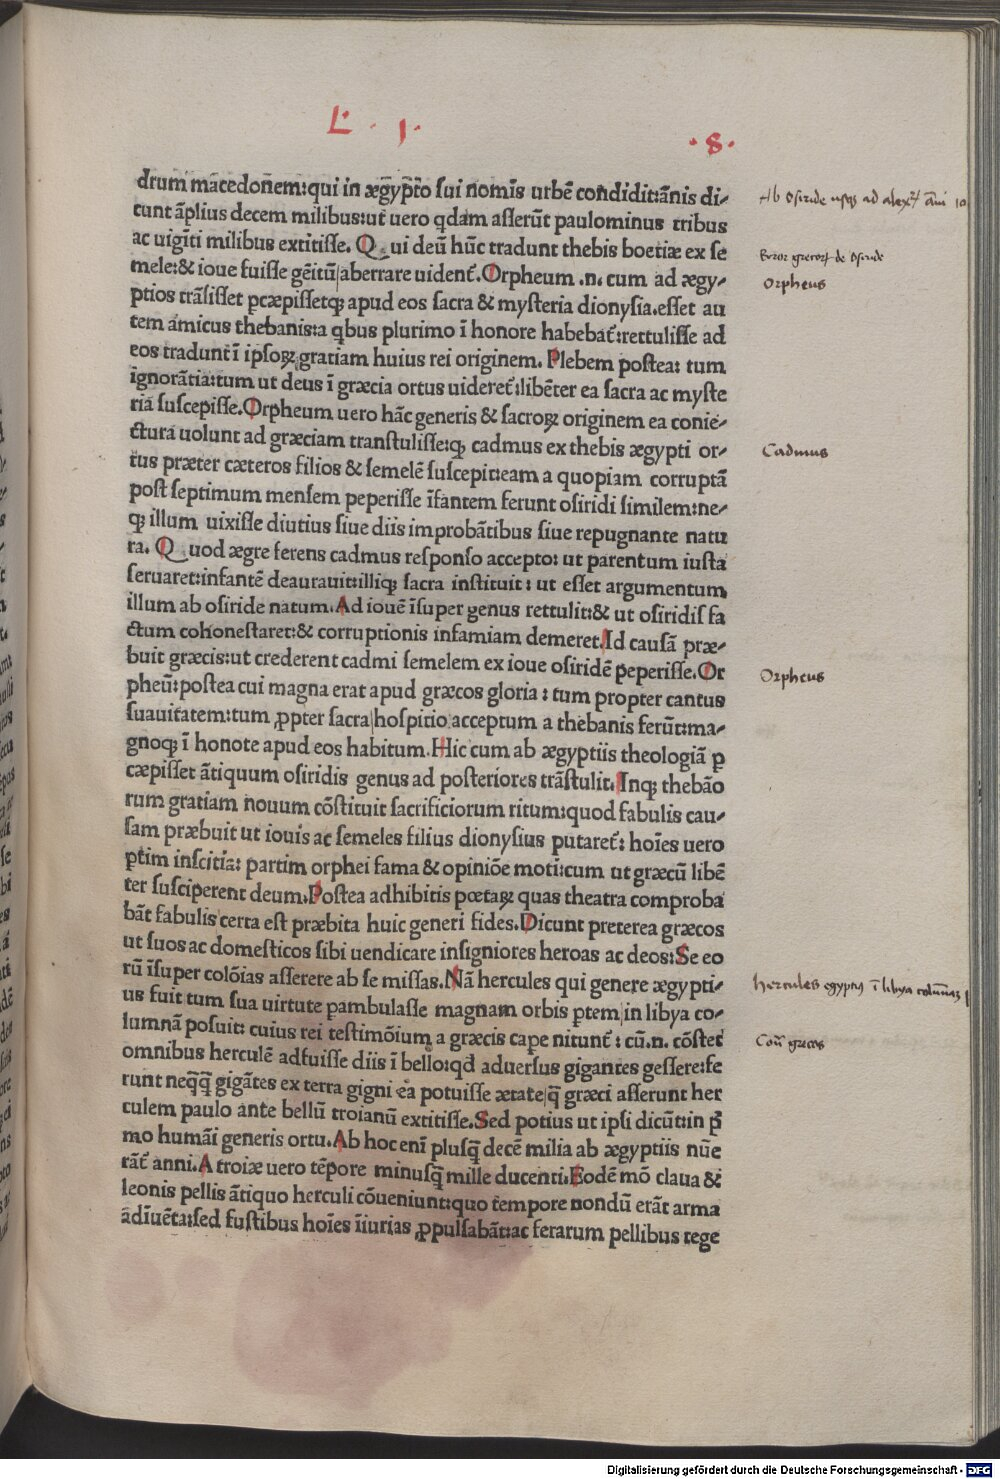 L. . I.
. 8 .
drum macedonem:qui in ægypto sui nomis urbē condidit:ānis di-
cunt āplius decem milibus:ut uero qdam asserūt paulominus tribus
ac uigīti milibus extitisse. Qui deū hūc tradunt thebis boetiæ ex se
mele:& ioue fuisse gēitū aberrare uident̄. Orpheum .n. cum ad ægy-
ptios trāsisset pcæpissetq; apud eos sacra & mysteria dionysia.esset au
tem amicus thebanis:a qbus plurimo ī honore habebat̄:rettulisse ad
eos tradunt ī ipsoꝝ gratiam huius rei originem. Plebem postea: tum
ignorātia:tum ut deus ī græcia ortus uideret̄:libēter ea sacra ac myste
ria suscepisse.Orpheum uero hāc generis & sacroꝝ originem ea conie-
ctura uolunt ad græciam transtulisse:q; cadmus ex thebis ægypti or-
tus præter cæteros filios & semelē suscepit:eam a quopiam corruptā
post septimum mensem peperisse īfantem ferunt osiridi similem:ne-
q; illum uixisse diutius siue diis improbātibus siue repugnante natu
ra. Quod ægre ferens cadmus responso accepto: ut parentum iusta
seruaret:infantē deaurauit:illiq; sacra instituit: ut esset argumentum
illum ab osiride natum.Ad iouē īsuper genus rettulit:& ut osiridis fa
ctum cohonestaret:& corruptionis infamiam demeret.Id causā præ-
buit græcis:ut crederent cadmi semelem ex ioue osiridē ꝑeperisse.Or
pheū:postea cui magna erat apud græcos gloria: tum propter cantus
suauitatem:tum ꝓpter sacra hospitio acceptum a thebanis ferūt:ma-
gnoq; ī honote apud eos habitum.Hic cum ab ægyptiis theologiā p
cæpisset ātiquum osiridis genus ad posteriores trāstulit.Inq; thebāo
rum gratiam nouum cōstituit sacrificiorum ritum:quod fabulis cau-
sam præbuit ut iouis ac semeles filius dionysius putaret̄: hoīes uero
ptim inscitia: partim orphei fama & opiniōe moti:cum ut græcū libē
ter susciperent deum.Postea adhibitis poetaꝝ quas theatra comproba
bāt fabulis certa est præbita huic generi fides.Dicunt preterea græcos
ut suos ac domesticos sibi uendicare insigniores heroas ac deos:Se eo
rū īsuper colōias asserere ab se missas.Nā hercules qui genere ægypti-
us fuit tum sua uirtute pambulasse magnam orbis ptem in libya co-
lumnā posuit: cuius rei testimōium a græcis cape nitunt̄: cū.n. cōstet
omnibus herculē adfuisse diis ī bello:qd aduersus gigantes gessere:fe
runt neqq̄ gigātes ex terra gigni ea potuisse ætate q̄ græci asserunt her
culem paulo ante bellū troianū extitisse.Sed potius ut ipsi dicūt:in p̄
mo humāi generis ortu.Ab hoc enī plusq̄ decē milia ab ægyptiis nūe
rāt̄ anni.A troiæ uero tēpore minusq̄ mille ducenti.Eodē mō claua &
leonis pellis ātiquo herculi cōueniunt:quo tempore nondū erāt arma
adīuēta:sed fustibus hoīes īiurias ꝓpulsabāt:ac ferarum pellibus tege
Ab Osiride usq; ad
Error grecorꝝ de Osiride
Orpheus
Cadmus
Orpheus
hercules egyptus ī libya
Contra grecos
Digitalisierung gefördert durch die Deutsche Forschungsgemeinschaft - DFG